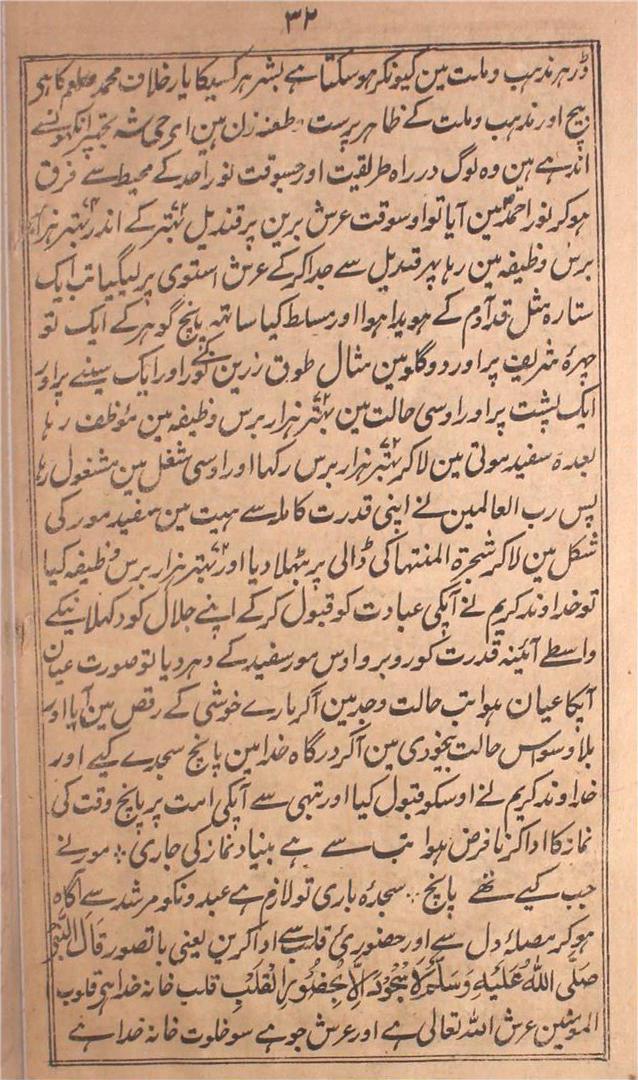 ٣٢
ڈر ہر مذہب و ملت مین کیونکر ہو سکتا ہے بشر ہر کسیکا یار خلاف محمد صلعم کا ہی
ہیچ اور مذہب و ملت کے ظاہر پرست طعنہ زن ہین ای تماشہ
اندہے ہین وہ لوگ در راہ طریقیت اور جسوقت نور احد کے محیط سے فرق
ہو کر نور احمد مین آیا تو اوسوقت عرش برین پر قندیل ۷۲ بہتر کے اندر ۷۲ بہتر ہزار
برس وظیفہ مین رہا پہر قندیل سے جدا کر کے عرش استوی پر لیگیا تب ایک
ستارہ مثل قد آدم کے ہویدا ہوا اور مسلط کیا ساتہہ پانچ گوہر کے ایک تو
چہرۂ شریف پر اور دو گلو مین مثال طوق زرین کے اور ایک سینے پر اور
ایک پشت پر اور اوسی حالت مین ۷۲ بہتر ہزار برس وظیفہ مین موظف رہا
بعدہ سفید موتی مین لا کر ۷۲ بہتر ہزار برس رکہا اور اوسی شغل مین مشغول رہا
پس رب العالمین نے اپنی قدرت کاملہ سے ہیت مین سفید مور کی
شکل مین لا کر شجرۃ المنتہا کی ڈالی پر بٹہلا دیا اور ۷۲ بہتر ہزار برس وظیفہ کیا
تو خداوند کریم نے آپکی عبادت کو قبول کر کے اپنے جلال کو دکہلانیکے
واسطے آئینہ قدرت کو روبرو اوس مور سفید کے دہر دیا تو صورت عیان
آپکا عیان ہوا تب حالت وجد مین آ کر بارے خوشی کے رقص مین آیا اور
بلا وسواس حالت بیخودی مین آ کر درگاہ خدا مین پانچ سجدے کیے اور
خداوند کریم نے اوسکو قبول کیا اور تبہی سے آپکی امت پر پانچ وقت کی
نماز کا ادا کرنا فرض ہوا تب سے ہے بنیاد نماز کی جاری ؞ مور نے
جب کیے تھے پانچ ؞ سجدۂ باری تو لازم ہے عبدونکو مرشد سے آگاہ
ہو کر مصلۂ دل سے اور حضوری قلب سے ادا کرین یعنی با تصور قَالَ النَّبِیُّ
صَلَّی اللّٰہُ عَلَیْہِ وَسَلَّمَ لَا سُجُوْدَ اِلَّا بِحُضُوْرِ الْقَلْبِ قلب خانہ خدا ہی قلوب
المومنین عرش اللہ تعالی ہے اور عرش جو ہے سو خلوت خانہ خدا ہے